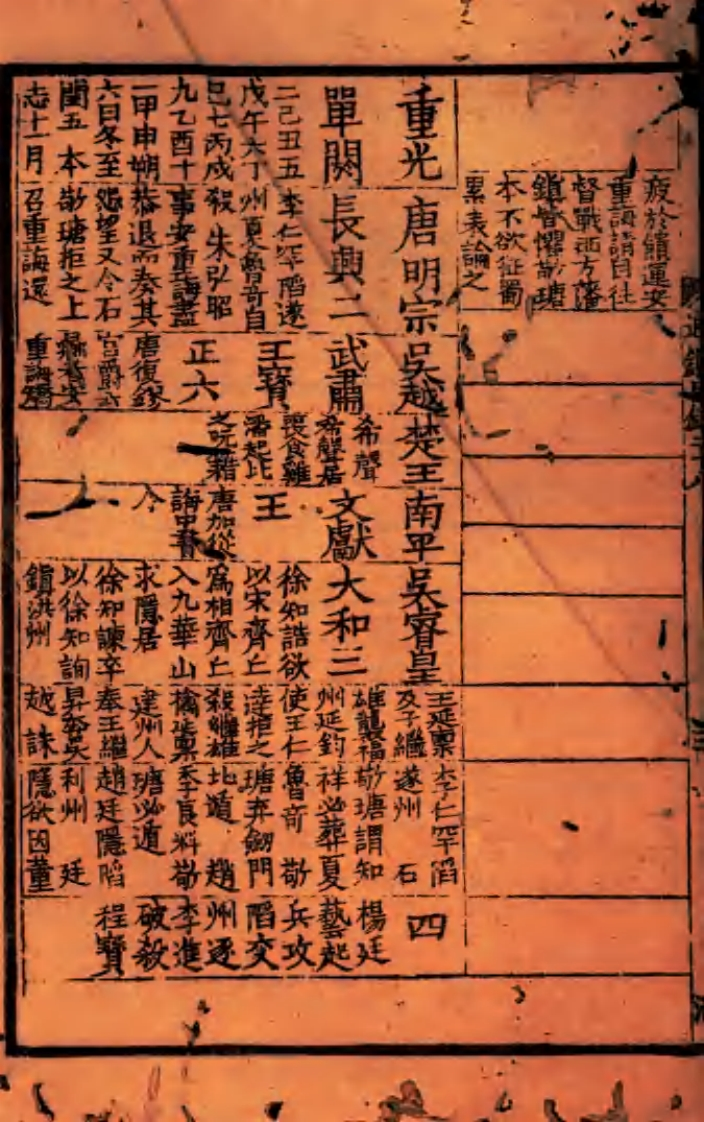 疲於餽運安
重誨請自往
督戰西方藩
鎮皆懼敬瑭
本不欲征蜀
累表論之
重光
單閼
二己丑五
戊午六丁
巳七丙戌
九乙酉十
一甲申朔
六日冬至
閏五 本
志十一月
唐明宗
長興二
李仁罕陷遂
州夏魯奇自
殺 朱弘昭
事安重誨盡
恭退而奏其
怨望又令石
敬瑭拒之上
召重誨還
吳越
武肅
王寶
正六
唐復鏐
官爵
重誨矯
楚王
希聲
希聲居
喪食雞
潘起比
之阮籍
南平
文獻
王
唐加從
誨中書
令
吳睿皇
大和三
徐知誥欲
以宋齊丘
爲相齊丘
入九華山
求隱居
徐知諫卒
以徐知詢
鎮洪州
王延稟
及子繼
雄襲福
州延鈞
使王仁
達拒之
殺繼雄
擒延稟
建州人
奉王繼
昇奔吳
越 誅
李仁罕陷
遂州 石
敬瑭謂知
祥必葬夏
魯奇 敬
瑭弃劒門
北遁 趙
季良料敬
瑭必遁
趙廷隱陷
利州 廷
隱欲因董
四
楊廷
藝起
兵攻
陷交
州逐
李進
破殺
程寶